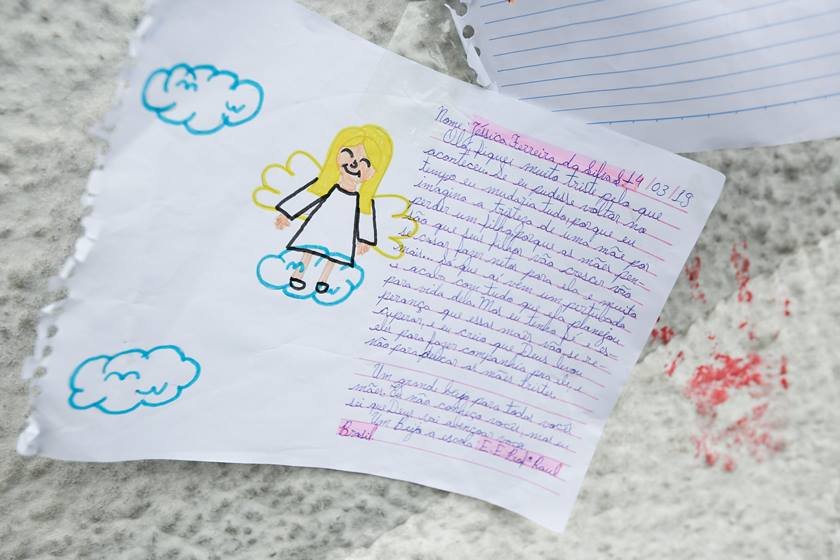 Nome: Jéssica Ferreira da Silva 14/03/19
Olá, fiquei muito triste pelo que
aconteceu. Se eu pudesse voltar no
tempo eu mudaria tudo, porque eu
imagino a tristeza de uma mãe por
perder um filho, porque as mães pen-
são que seus filhos vão crescer, vão
se casar, fazer netos para ela e muito
mais... Só que aí vem um perturbado
e acaba com tudo que ela planejou
para vida dela. Mas eu tenho fé e es-
perança que essas mães vão se re-
cuperar, e eu creio que Deus levou
eles para fazer companhia pra ele e
não para deixar as mães tristes.
Um grande beijo para todas vocês
mães. Eu não conheço vocês, mas eu
sei que Deus vai abençoar vocês
Um beijo a escola E.E Profº Raul
Brasil